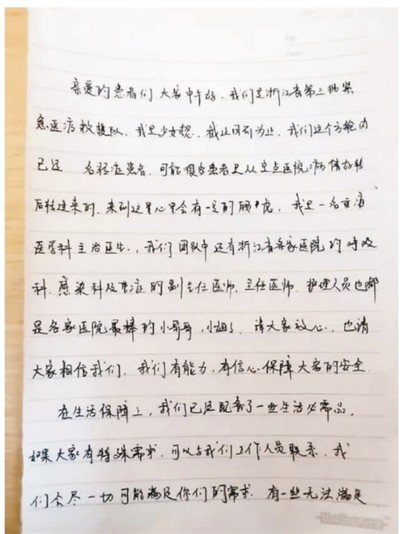 亲爱的患者们 大家中午好、我们是浙江省第三批紧
急医疗救援队、我是少女熊、截止目前为止、我们这个方舱内
已经 名轻症患者、可能很多患者是从定点医院病情好转
后转过来的、来到这里心里会有一定的顾虑、我是一名重症
医学科主治医生、我们团队中还有浙江省各家医院的呼吸
科、感染科及重症的副主任医师、主任医师、护理人员也都
是各家医院最棒的小哥哥,小姐姐、请大家放心、也请
大家相信我们、我们有能力,有信心保障大家的安全
在生活保障上、我们已经配备了一些生活必需品、
如果大家有特殊需求、可以与我们工作人员联系、我
们会尽一切可能满足你们的需求 有一些无法满足